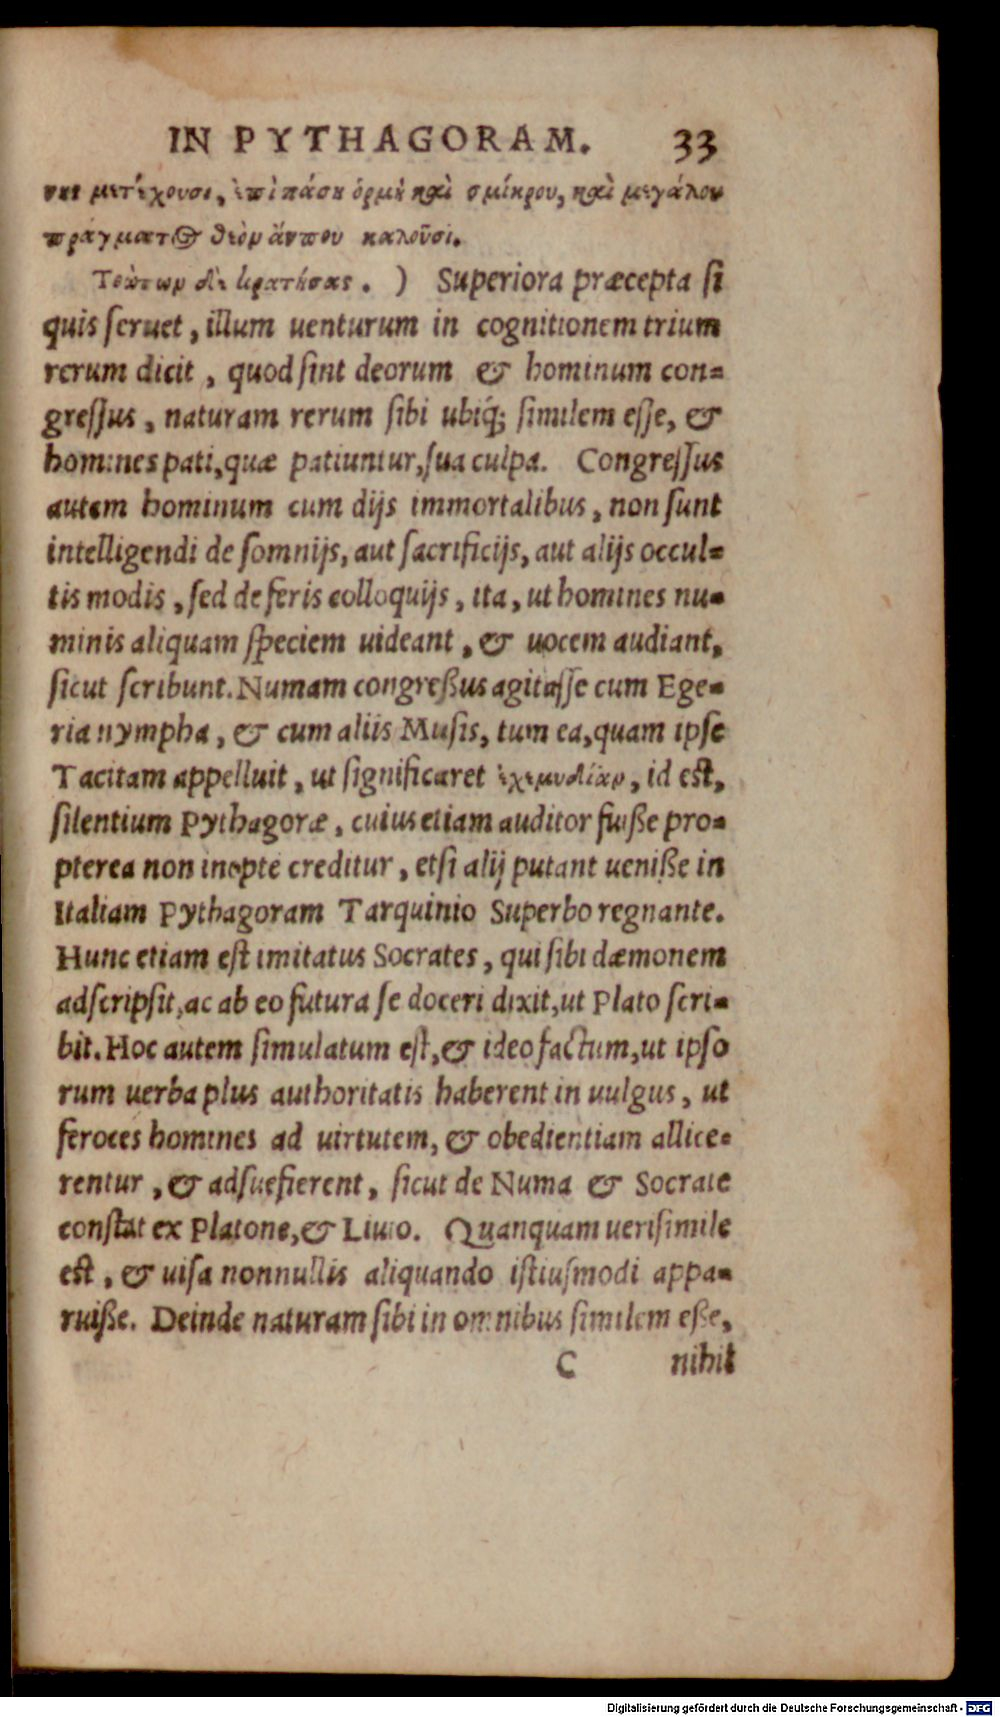 IN PYTHAGORAM. 33
νης μετέχουσι, ἐπὶ πάσῃ ὁρμῇ καὶ σμίκρου, καὶ μεγάλου
πράγματος θεὸν ἄνπου καλοῦσι.
Τούτων δὲ κρατήσας. ) Superiora præcepta si
quis seruet, illum uenturum in cognitionem trium
rerum dicit, quod sint deorum & hominum con=
gressus, naturam rerum sibi ubiq́; similem esse, &
homines pati, quæ patiuntur, sua culpa. Congressus
autem hominum cum dijs immortalibus, non sunt
intelligendi de somnijs, aut sacrificijs, aut alijs occul=
tis modis, sed de feris colloquijs, ita, ut homines nu=
minis aliquam speciem uideant, & uocem audiant,
sicut scribunt. Numam congreßus agitasse cum Ege=
ria nympha, & cum aliis Musis, tum ea, quam ipse
Tacitam appelluit, ut significaret ἐχεμυθίαν, id est,
silentium Pythagoræ, cuius etiam auditor fuiße pro=
pterea non inepte creditur, etsi alij putant ueniße in
Italiam Pythagoram Tarquinio Superbo regnante.
Hunc etiam est imitatus Socrates, qui sibi dæmonem
adscripsit, ac ab eo futura se doceri dixit, ut Plato scri=
bit. Hoc autem simulatum est, & ideo factum, ut ipso
rum uerba plus authoritatis haberent in uulgus, ut
feroces homines ad uirtutem, & obedientiam allice=
rentur, & adsuefierent, sicut de Numa & Socrate
constat ex Platone, & Liuio. Quanquam uerisimile
est, & uisa nonnullis aliquando istiusmodi appa=
ruiße. Deinde naturam sibi in omnibus similem eße,
C nihil
Digitalisierung gefördert durch die Deutsche Forschungsgemeinschaft - DFG